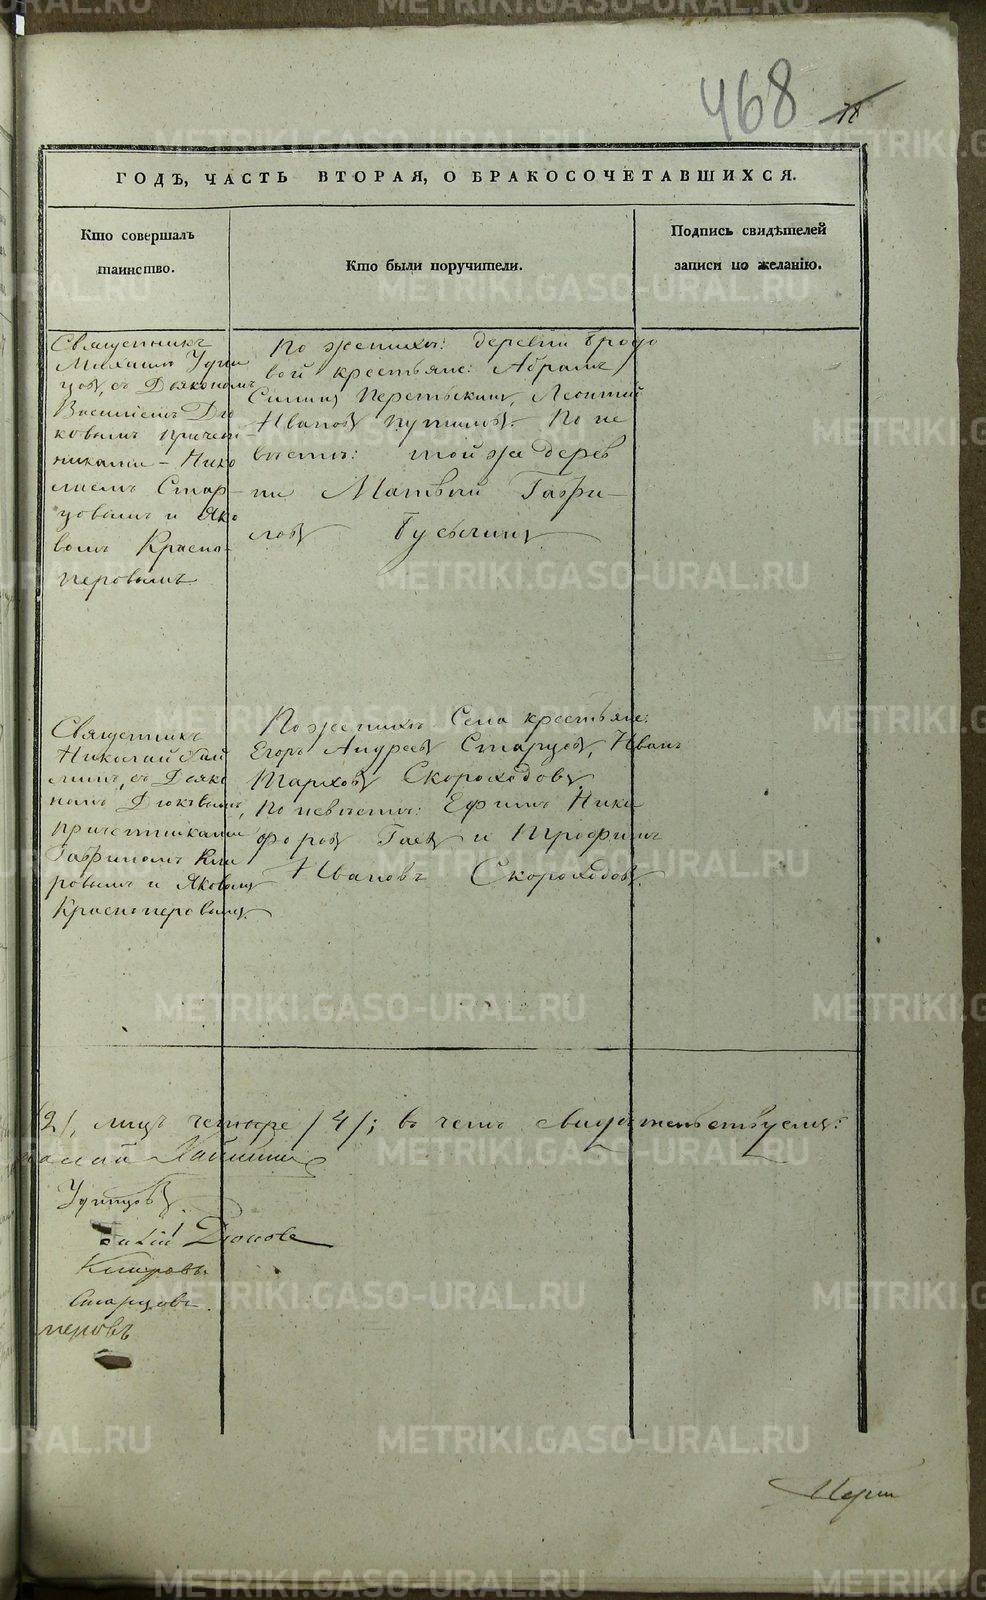 468 78
ГОДЪ, ЧАСТЬ ВТОРАЯ, О БРАКОСОЧЕТАВШИХСЯ.
Кто совершалъ
таинство.
Кто были поручители.
Подпись свидѣтелей
записи по желанію.
Священникъ
Михаилъ Удин
цовъ, съ Діякономъ
Василіемъ Дю
ковымъ причет-
никами - Нико
лаемъ Стар-
цовымъ и Яко
вомъ Красно-
перовымъ
По женихѣ: деревни Бродо
вой крестьяне: Абрамъ
Леонтій
Ивановъ Путиловъ. По не
вѣстѣ: той же дерев
ни Матвѣй Гаври-
ловъ Бусыгинъ
Священникъ
Николай
съ Діяко
номъ Дюковымъ,
причетниками
Гавриломъ Ки
ровымъ и Яковомъ
Красноперовымъ.
По женихѣ: Села крестьяне:
Егоръ Андреевъ Старцовъ, Иванъ
Марковъ Скороходовъ,
По невѣстѣ: Ефимъ Ники
форовъ Гаевъ и Трофимъ
Ивановъ Скороходовъ.
/2/, лицъ четыре /4/; въ чемъ свидѣтельствуемъ:
Удинцовъ.
Дюковъ
Старцовъ.
перовъ
METRIKI.GASO-URAL.RU